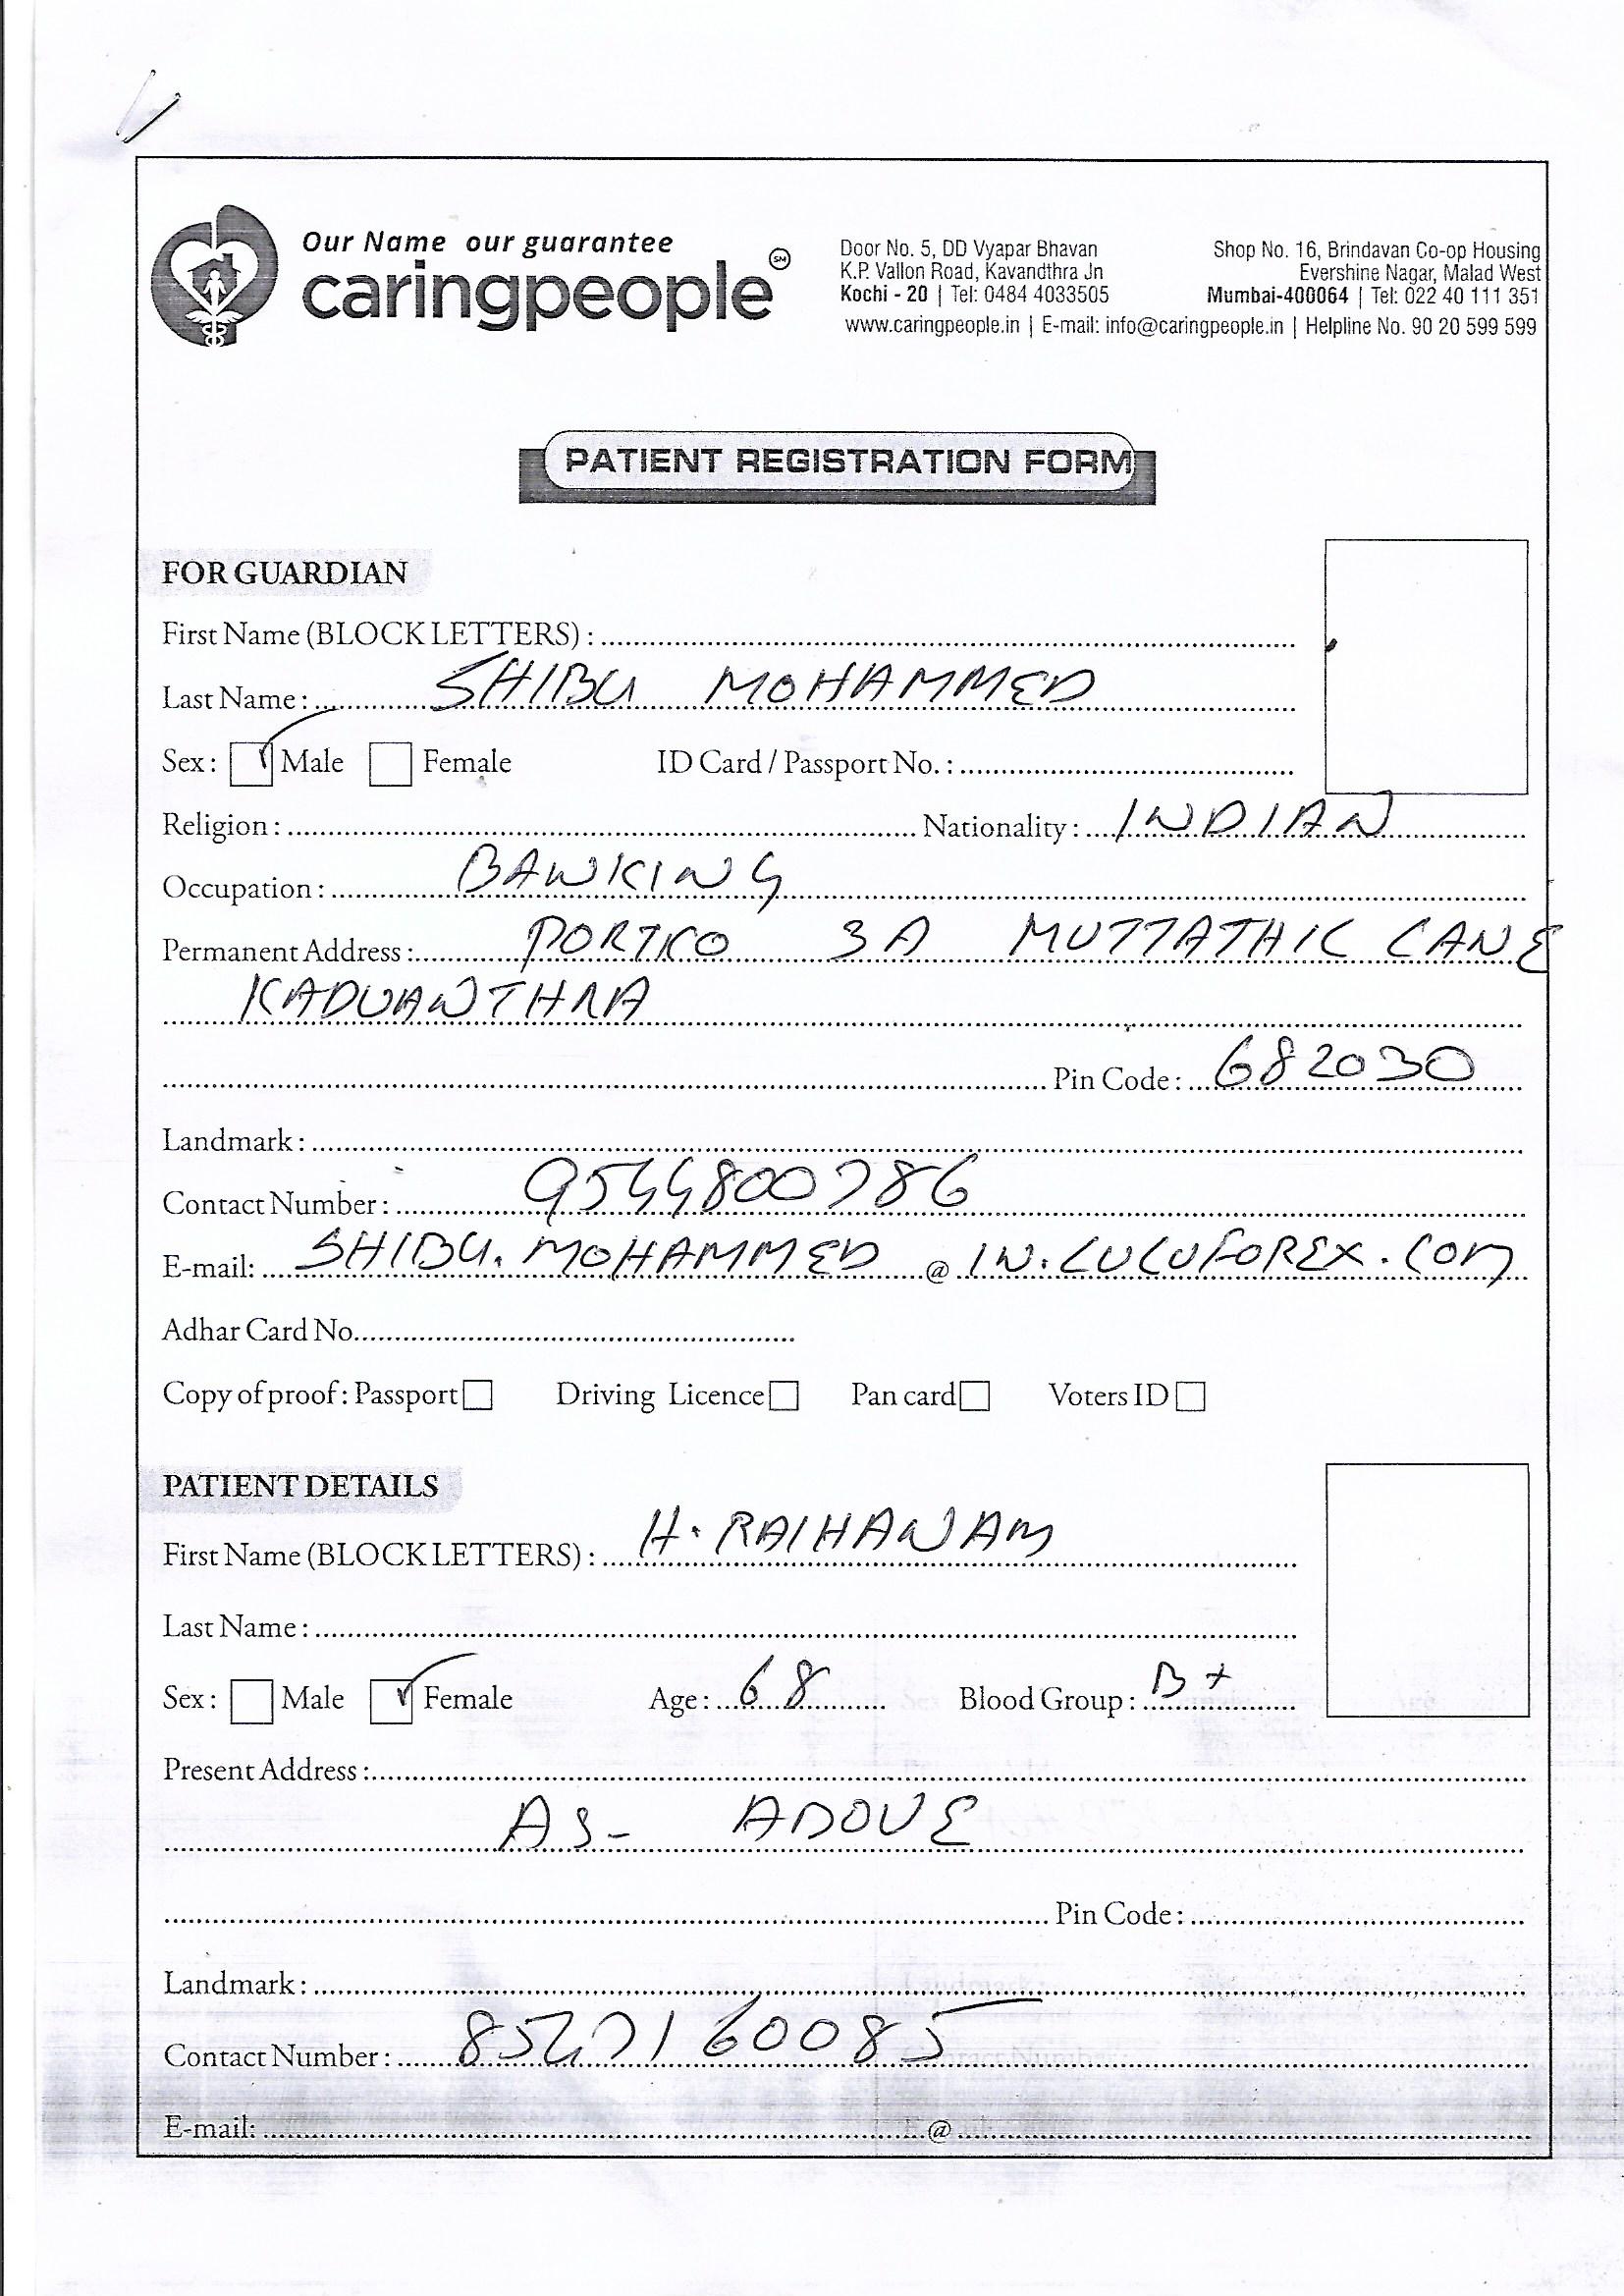 Our Name our guarantee
caringpeople SM
Door No. 5, DD Vyapar Bhavan
K.P. Vallon Road, Kavandthra Jn
Kochi - 20 | Tel: 0484 4033505
Shop No. 16, Brindavan Co-op Housing
Evershine Nagar, Malad West
Mumbai-400064 | Tel: 022 40 111 351
www.caringpeople.in | E-mail: info@caringpeople.in | Helpline No. 90 20 599 599
PATIENT REGISTRATION FORM
FOR GUARDIAN
First Name (BLOCK LETTERS) :
Last Name : SHIBU MOHAMMED
Sex : Male Female ID Card / Passport No. :
Religion : Nationality : INDIAN
Occupation : BANKING
Permanent Address : PORTICO 3A MUTTATHIL LANE
KADVANTHRA
Pin Code : 682030
Landmark :
Contact Number : 9544800786
E-mail: SHIBU.MOHAMMED @ IN.LULUFOREX.COM
Adhar Card No.
Copy of proof : Passport Driving Licence Pan card Voters ID
PATIENT DETAILS
First Name (BLOCK LETTERS) : H. RAIHANAM
Last Name :
Sex : Male Female Age : 68 Blood Group : B+
Present Address :
AS - ABOVE
Pin Code :
Landmark :
Contact Number :
E-mail: @